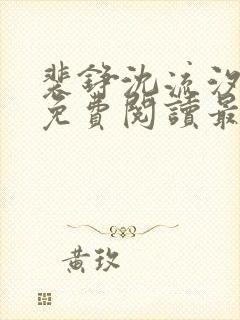 裴錚沈流汐
免費閱讀最
黃玫